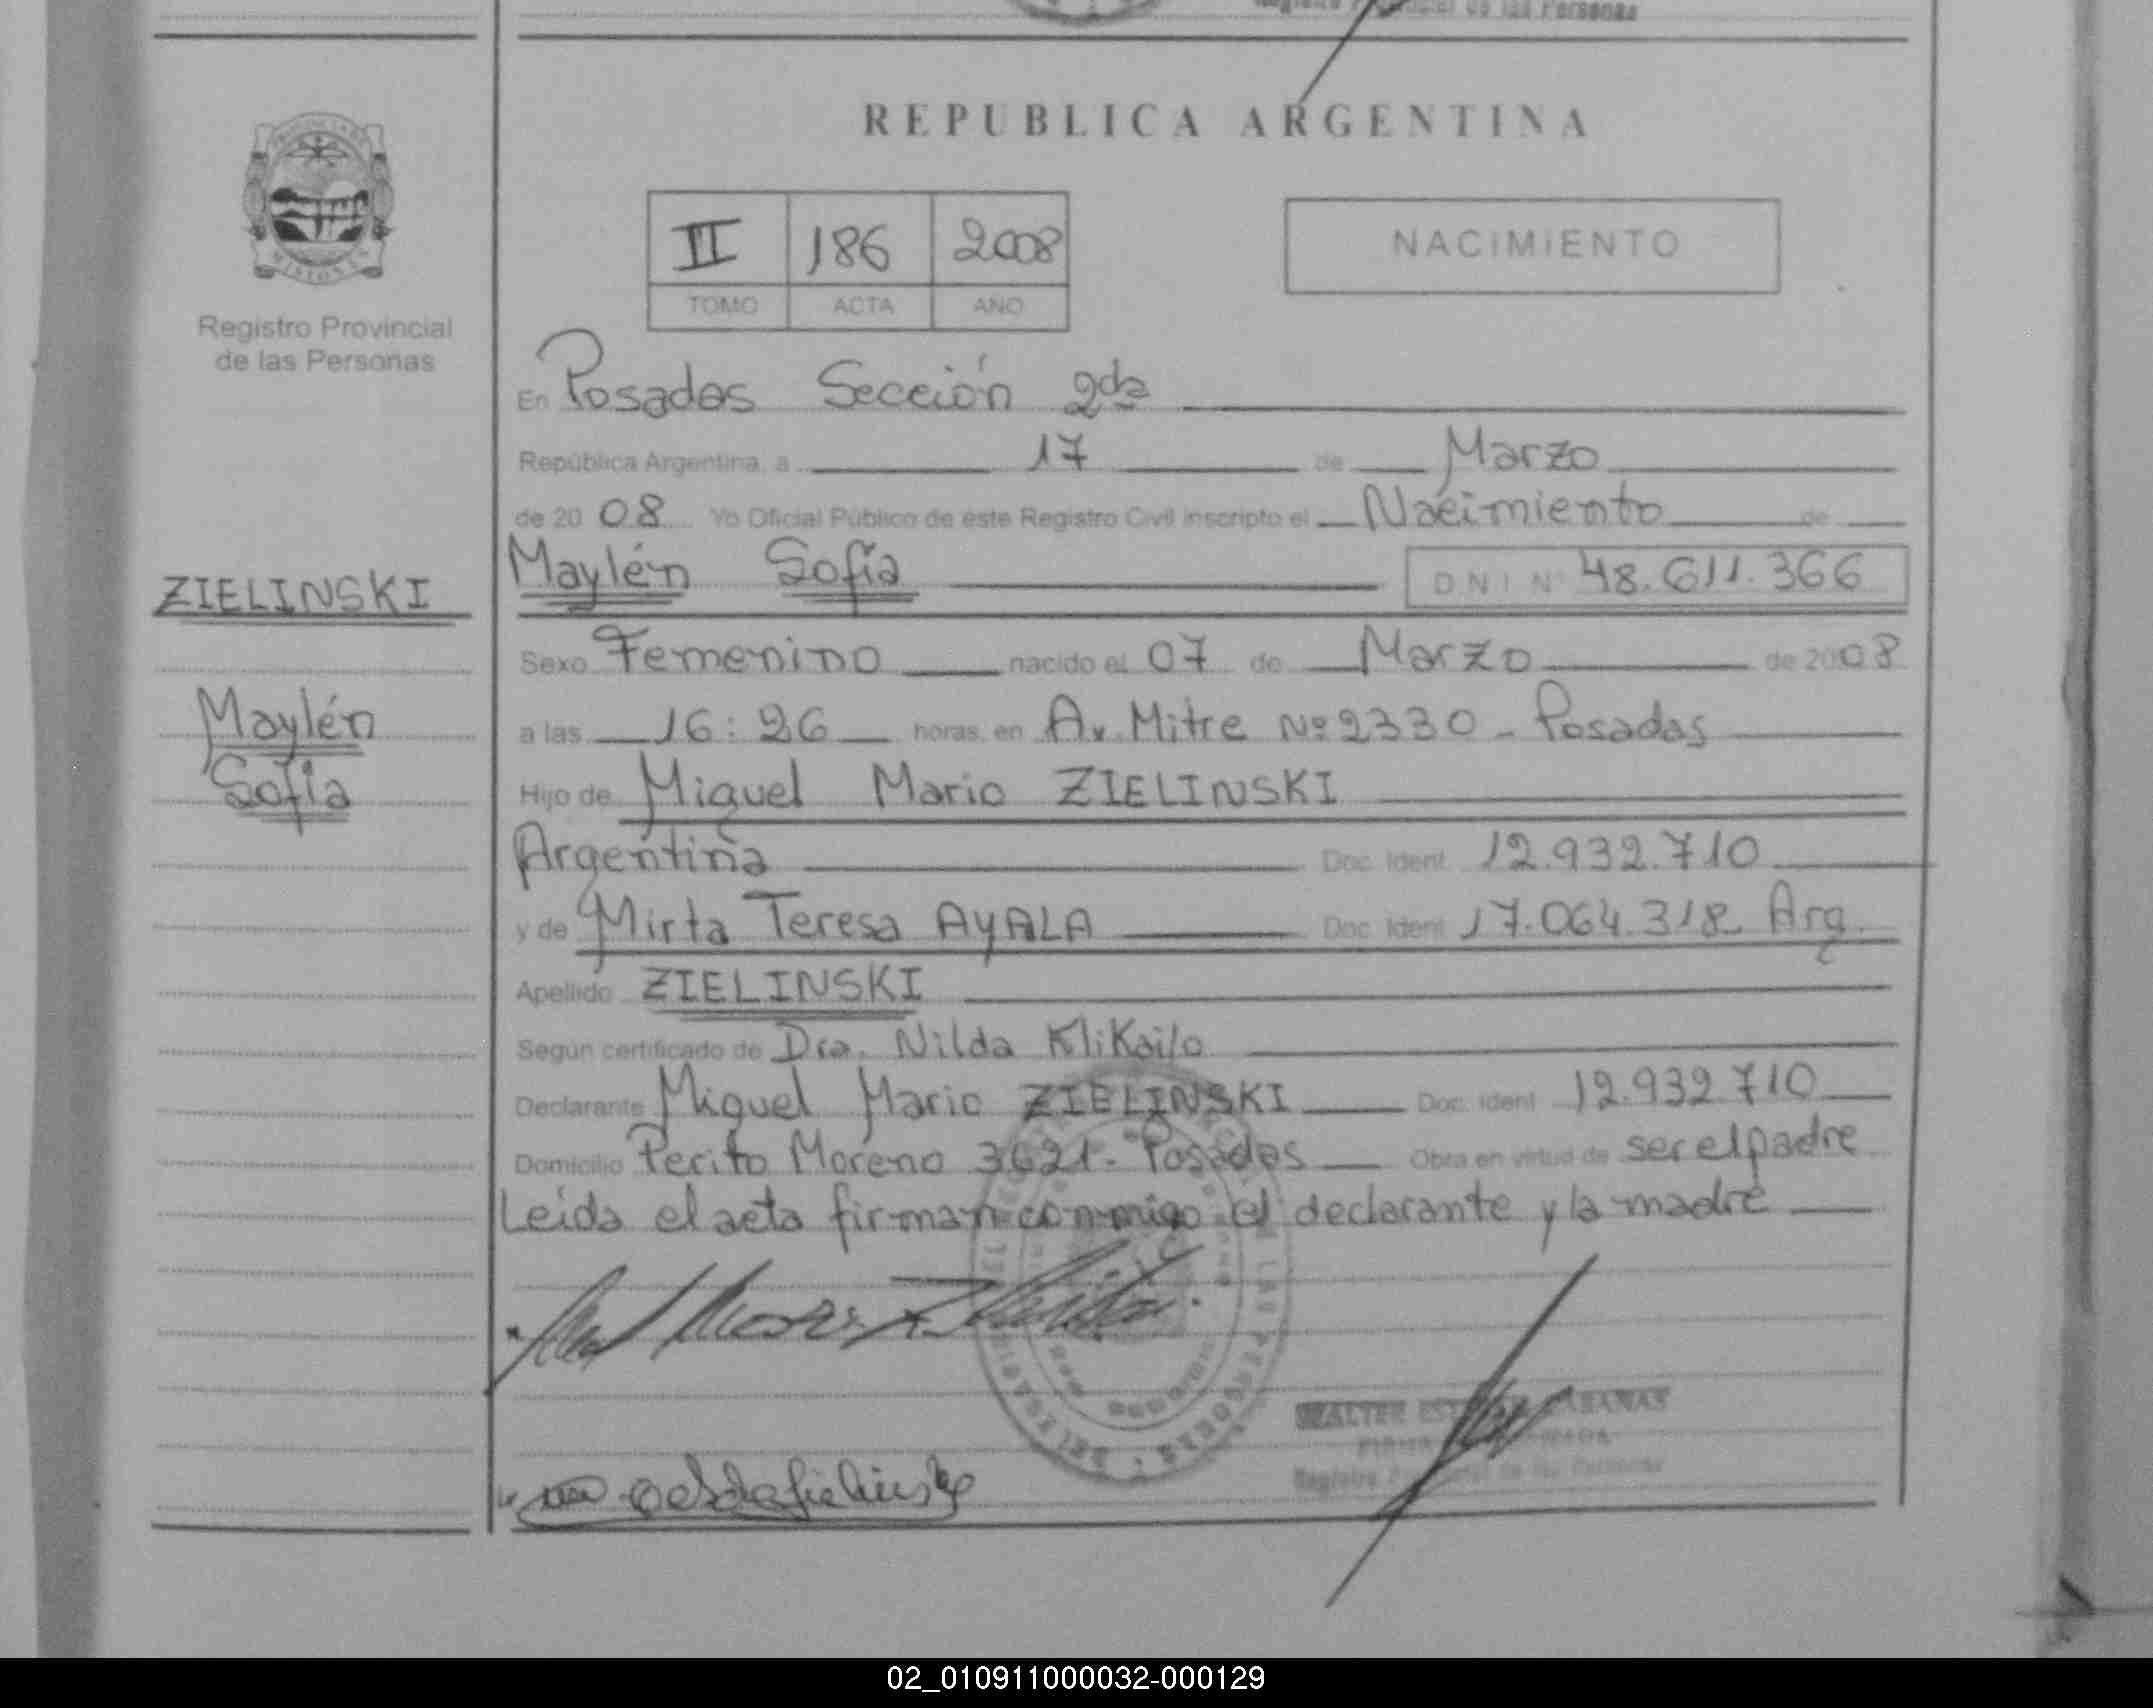 Registro Provincial de las Personas
REPUBLICA ARGENTINA
II 186 2008
TOMO ACTA AÑO
NACIMIENTO
MISIONES
Registro Provincial
de las Personas
En Posadas Sección 2da
República Argentina, a 17 de Marzo
de 2008 Yo Oficial Público de este Registro Civil inscripto el Nacimiento de
ZIELINSKI
Maylén Sofía D N I Nº 48.611.366
Sexo Femenino nacido el 07 de Marzo de 2008
Maylén
Sofía
a las 16:26 horas, en Av. Mitre Nº 2330 - Posadas
Hijo de Miguel Mario ZIELINSKI
Argentina Doc. Ident. 12.932.710
y de Mirta Teresa AYALA Doc. Ident. 17.064.318 Arg.
Apellido ZIELINSKI
Según certificado de Dra. Nilda Klikailo
Declarante Miguel Mario ZIELINSKI Doc. Ident. 12.932.710
Domicilio Perito Moreno 3621 - Posadas Obra en virtud de ser el padre
Leída el acta firman conmigo el declarante y la madre
WALTER
Registro Provincial de las Personas
02_010911000032-000129